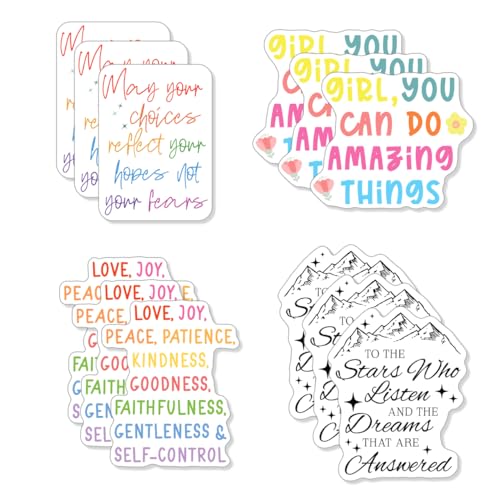 May your
choices
reflect your
hopes not
your fears
GIRL, YOU
GIRL, YOU
GIRL, YOU
CAN DO
AMAZING
THINGS
LOVE, JOY,
PEACE,
LOVE, JOY,
PEACE,
LOVE, JOY,
PEACE, PATIENCE,
KINDNESS,
GOODNESS,
FAITHFULNESS,
GENTLENESS &
SELF-CONTROL
TO THE
Stars Who
Listen
AND THE
Dreams
THAT ARE
Answered